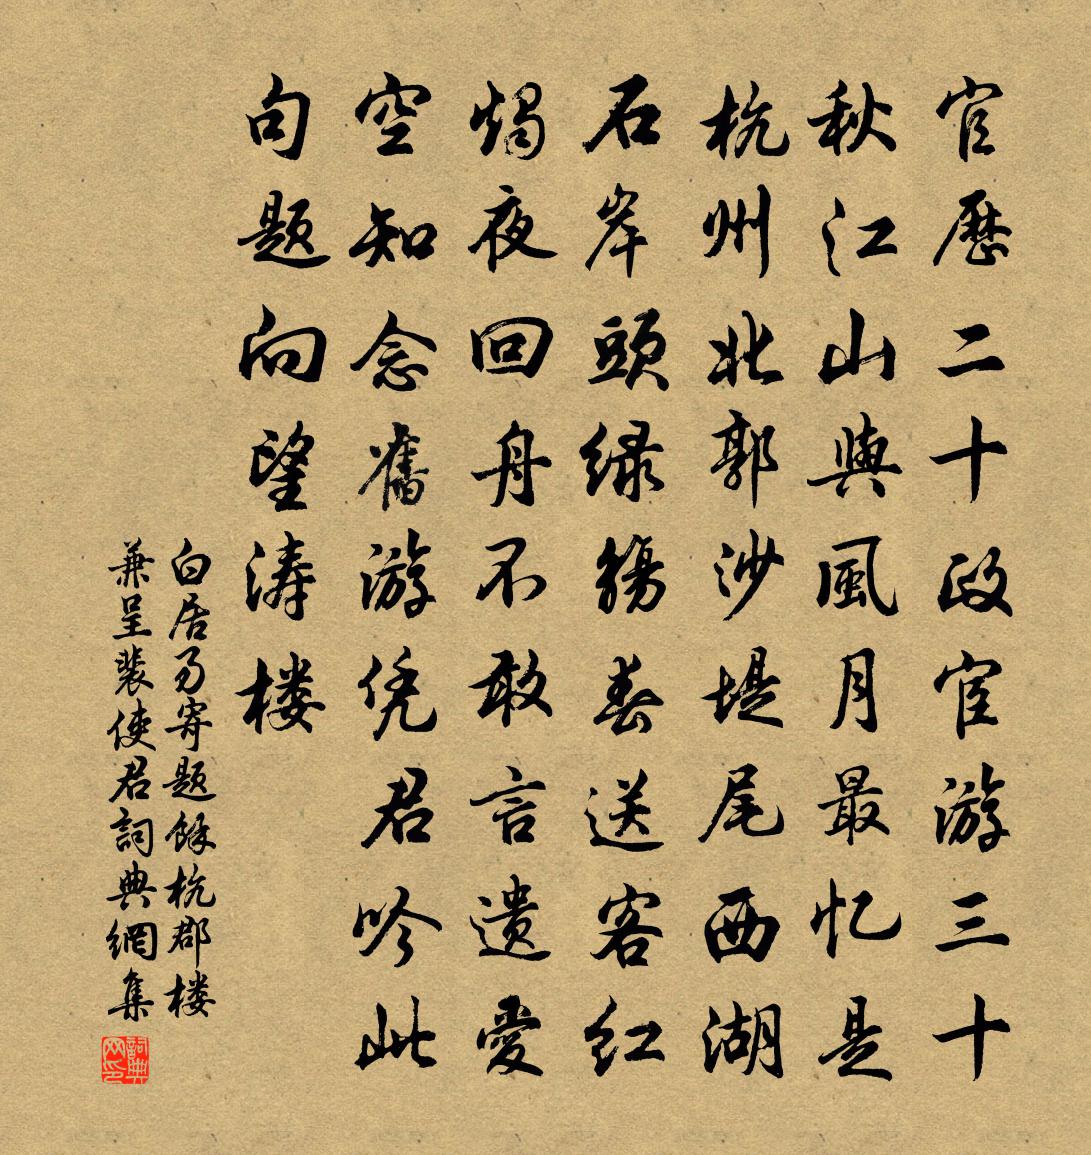 官歷二十政宦游三十
秋江山與風月最忆是
杭州北郭沙堤尾西湖
石岸頭绿觴春送客红
燭夜回舟不敢言遗愛
空知念舊游凭君吟此
句題向望涛楼
白居易寄題餘杭郡楼
兼呈裴使君詞典網集
詞典
网印